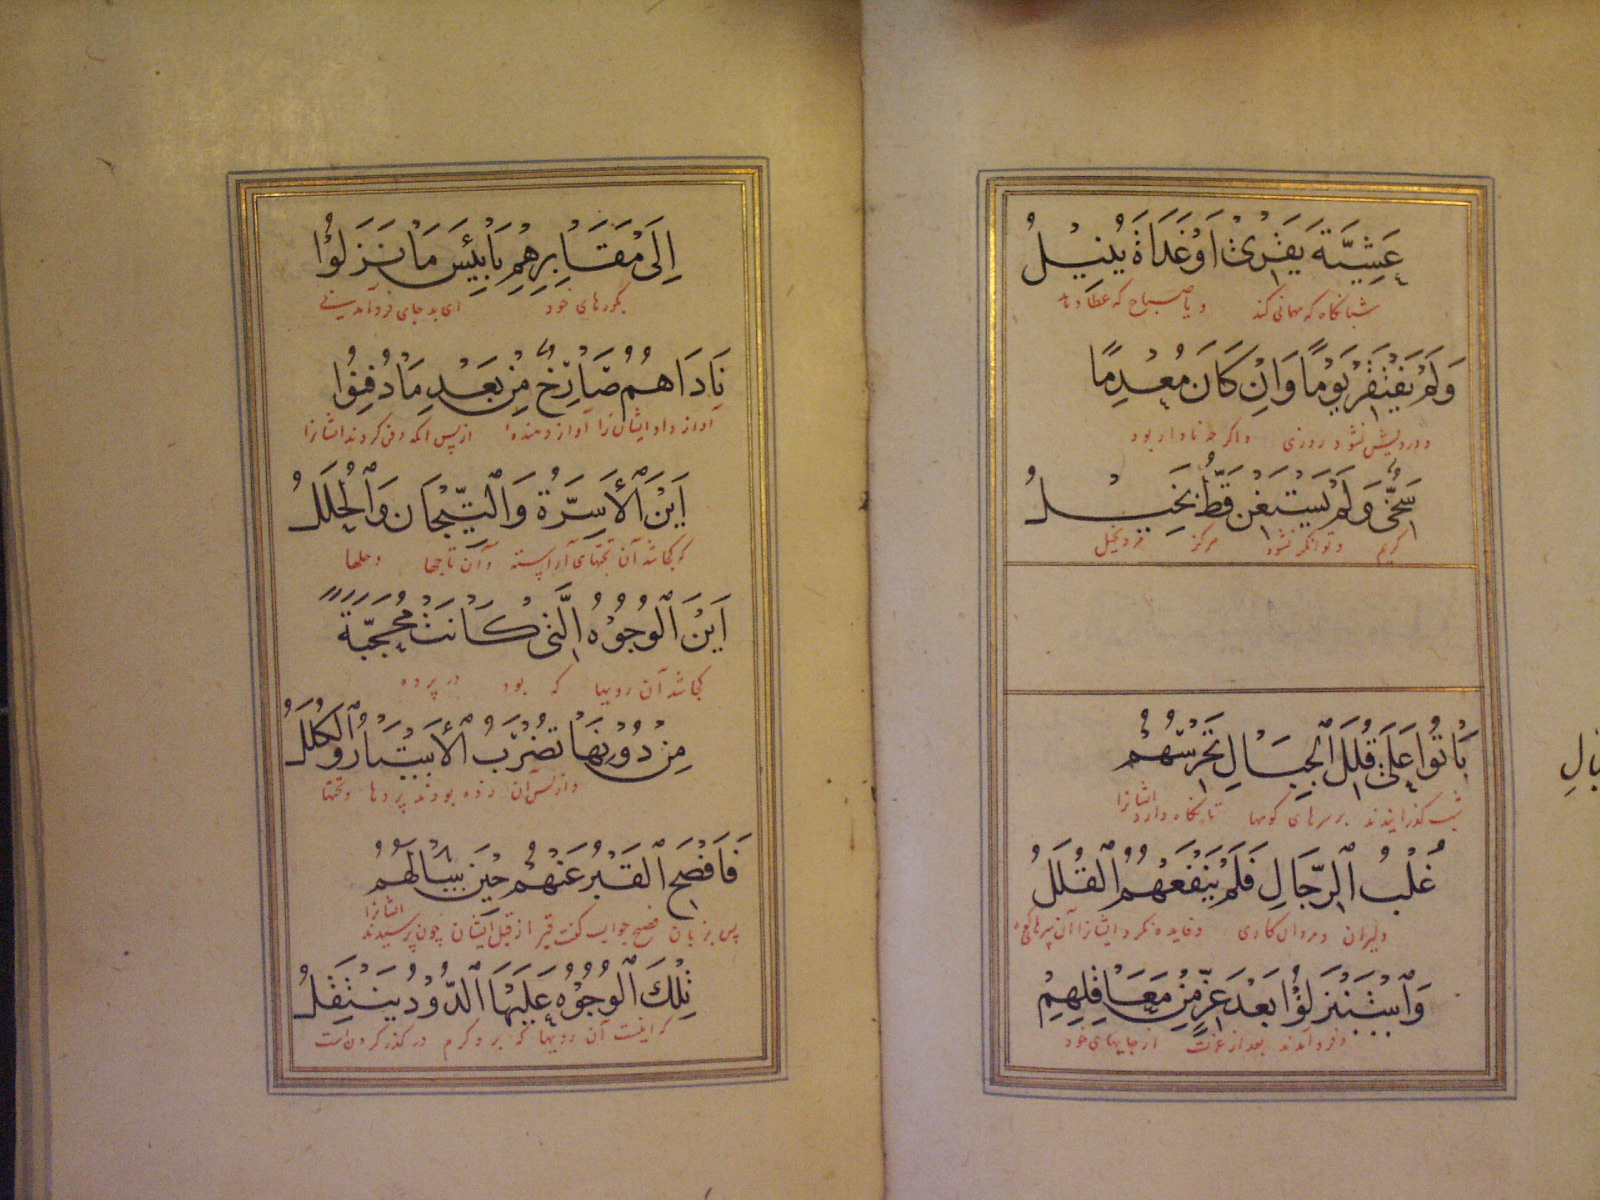 عَشِيَّةَ يَقْرِىْ اَوْ غَدَاةَ يُنِيْلُ
شبانگاه که مهمانی کند و یا صباح که عطا دهد
وَلَمْ يَفْتَقِرْ يَوْمًا وَاِنْ كَانَ مُعْدِمًا
و درویش نشود روزی و اگر چه نادار بود
سَخِىٌّ وَلَمْ يَسْتَغْنِ قَطُّ بَخِيْلُ
کریم و توانگر نشود هرگز مرد بخیل
بَاتُوْا عَلَىْ قُلَلِ الْجِبَالِ تَحْرُسُهُمْ
شب گذرانیدند بر سرهای کوهها تا نگاه دارد ایشانرا
غُلْبُ الرِّجَالِ فَلَمْ يَنْفَعْهُمُ الْقُلَلُ
دلیران و مردان کاری و فایده نکرد ایشانرا آن سرهای کوه
وَاسْتُنْزِلُوْا بَعْدَ عِزٍّ مِنْ مَعَاقِلِهِمْ
و فرو آمدند بعد از عزت از جایهای خود
بالِ
اِلَىْ مَقَابِرِهِمْ يَا بِئْسَ مَا نَزَلُوْا
بگورهای خود ای بد جای فرو آمدنی
نَادَاهُمْ صَارِخٌ مِنْ بَعْدِ مَا دُفِنُوْا
آواز داد ایشانرا آواز دهنده از پس آنکه دفن کردند ایشانرا
اَيْنَ الْاَسِرَّةُ وَالتِّيْجَانُ وَالْحُلَلُ
که کجا شد آن تختهای آراسته و آن تاجها و حلها
اَيْنَ الْوُجُوْهُ الَّتِىْ كَانَتْ مُحَجَّبَةً
کجا شد آن رویها که بود در پرده
مِنْ دُوْنِهَا تُضْرَبُ الْاَسْتَارُ وَالْكُلَلُ
و از پس آن زده بودند پردها و تختها
فَاَفْصَحَ الْقَبْرُ عَنْهُمْ حِيْنَ سَالَهُمْ
پس بزبان فصیح جواب گفت قبر از قبل ایشان چون پرسیدند ایشانرا
تِلْكَ الْوُجُوْهُ عَلَيْهَا الدُّوْدُ يَنْتَقِلُ
که اینست آن رویها که برو کرم در گذر کردن است